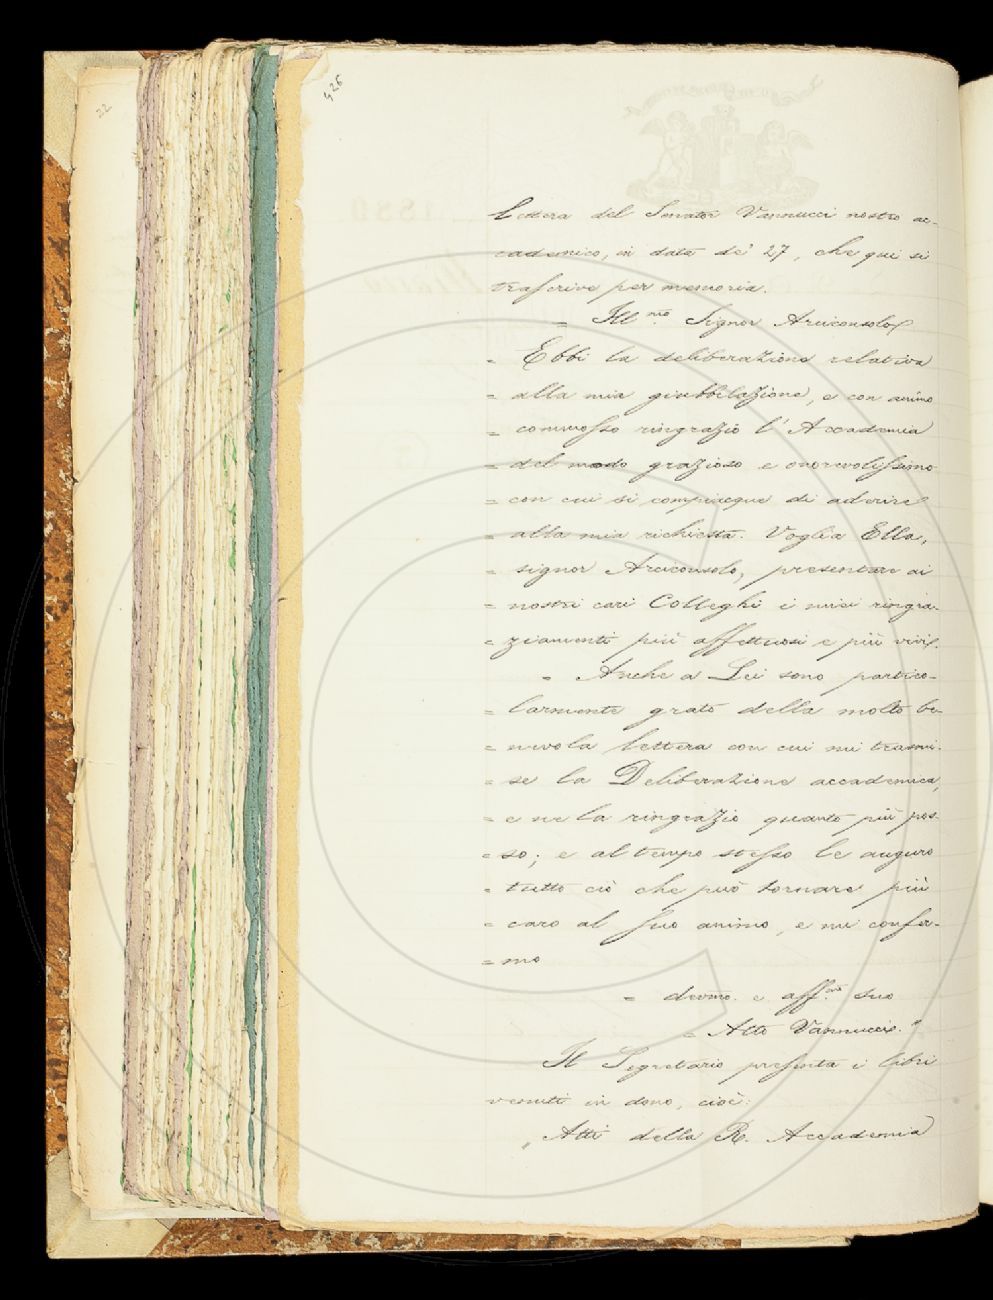 22
426
lettera del Senator Vannucci nostro ac-
cademico, in data de' 27, che qui si
trascrive per memoria.
= Ill.mo Signor Arciconsolo
= Ebbi la deliberazione relativa
= alla mia giubbilazione, e con animo
= commosso ringrazio l'Accademia
= del modo grazioso e onorevolissimo
= con cui si compiacque di aderire
= alla mia richiesta. Voglia Ella,
= signor Arciconsolo, presentare ai
= nostri cari Colleghi i miei ringra-
= ziamenti più affettuosi e più vivi.
= Anche a Lei sono partico-
= larmente grato della molto be-
= nevola lettera con cui mi trasmi-
= se la Deliberazione accademica,
= e ne la ringrazio quanto più pos-
= so; e al tempo stesso le auguro
= tutto ciò che può tornare più
= caro al suo animo, e mi confer-
= mo
= devmo. e aff.mo suo
= Atto Vannucci."
Il Segretario presenta i libri
venuti in dono, cioè:
"Atti della R. Accademia